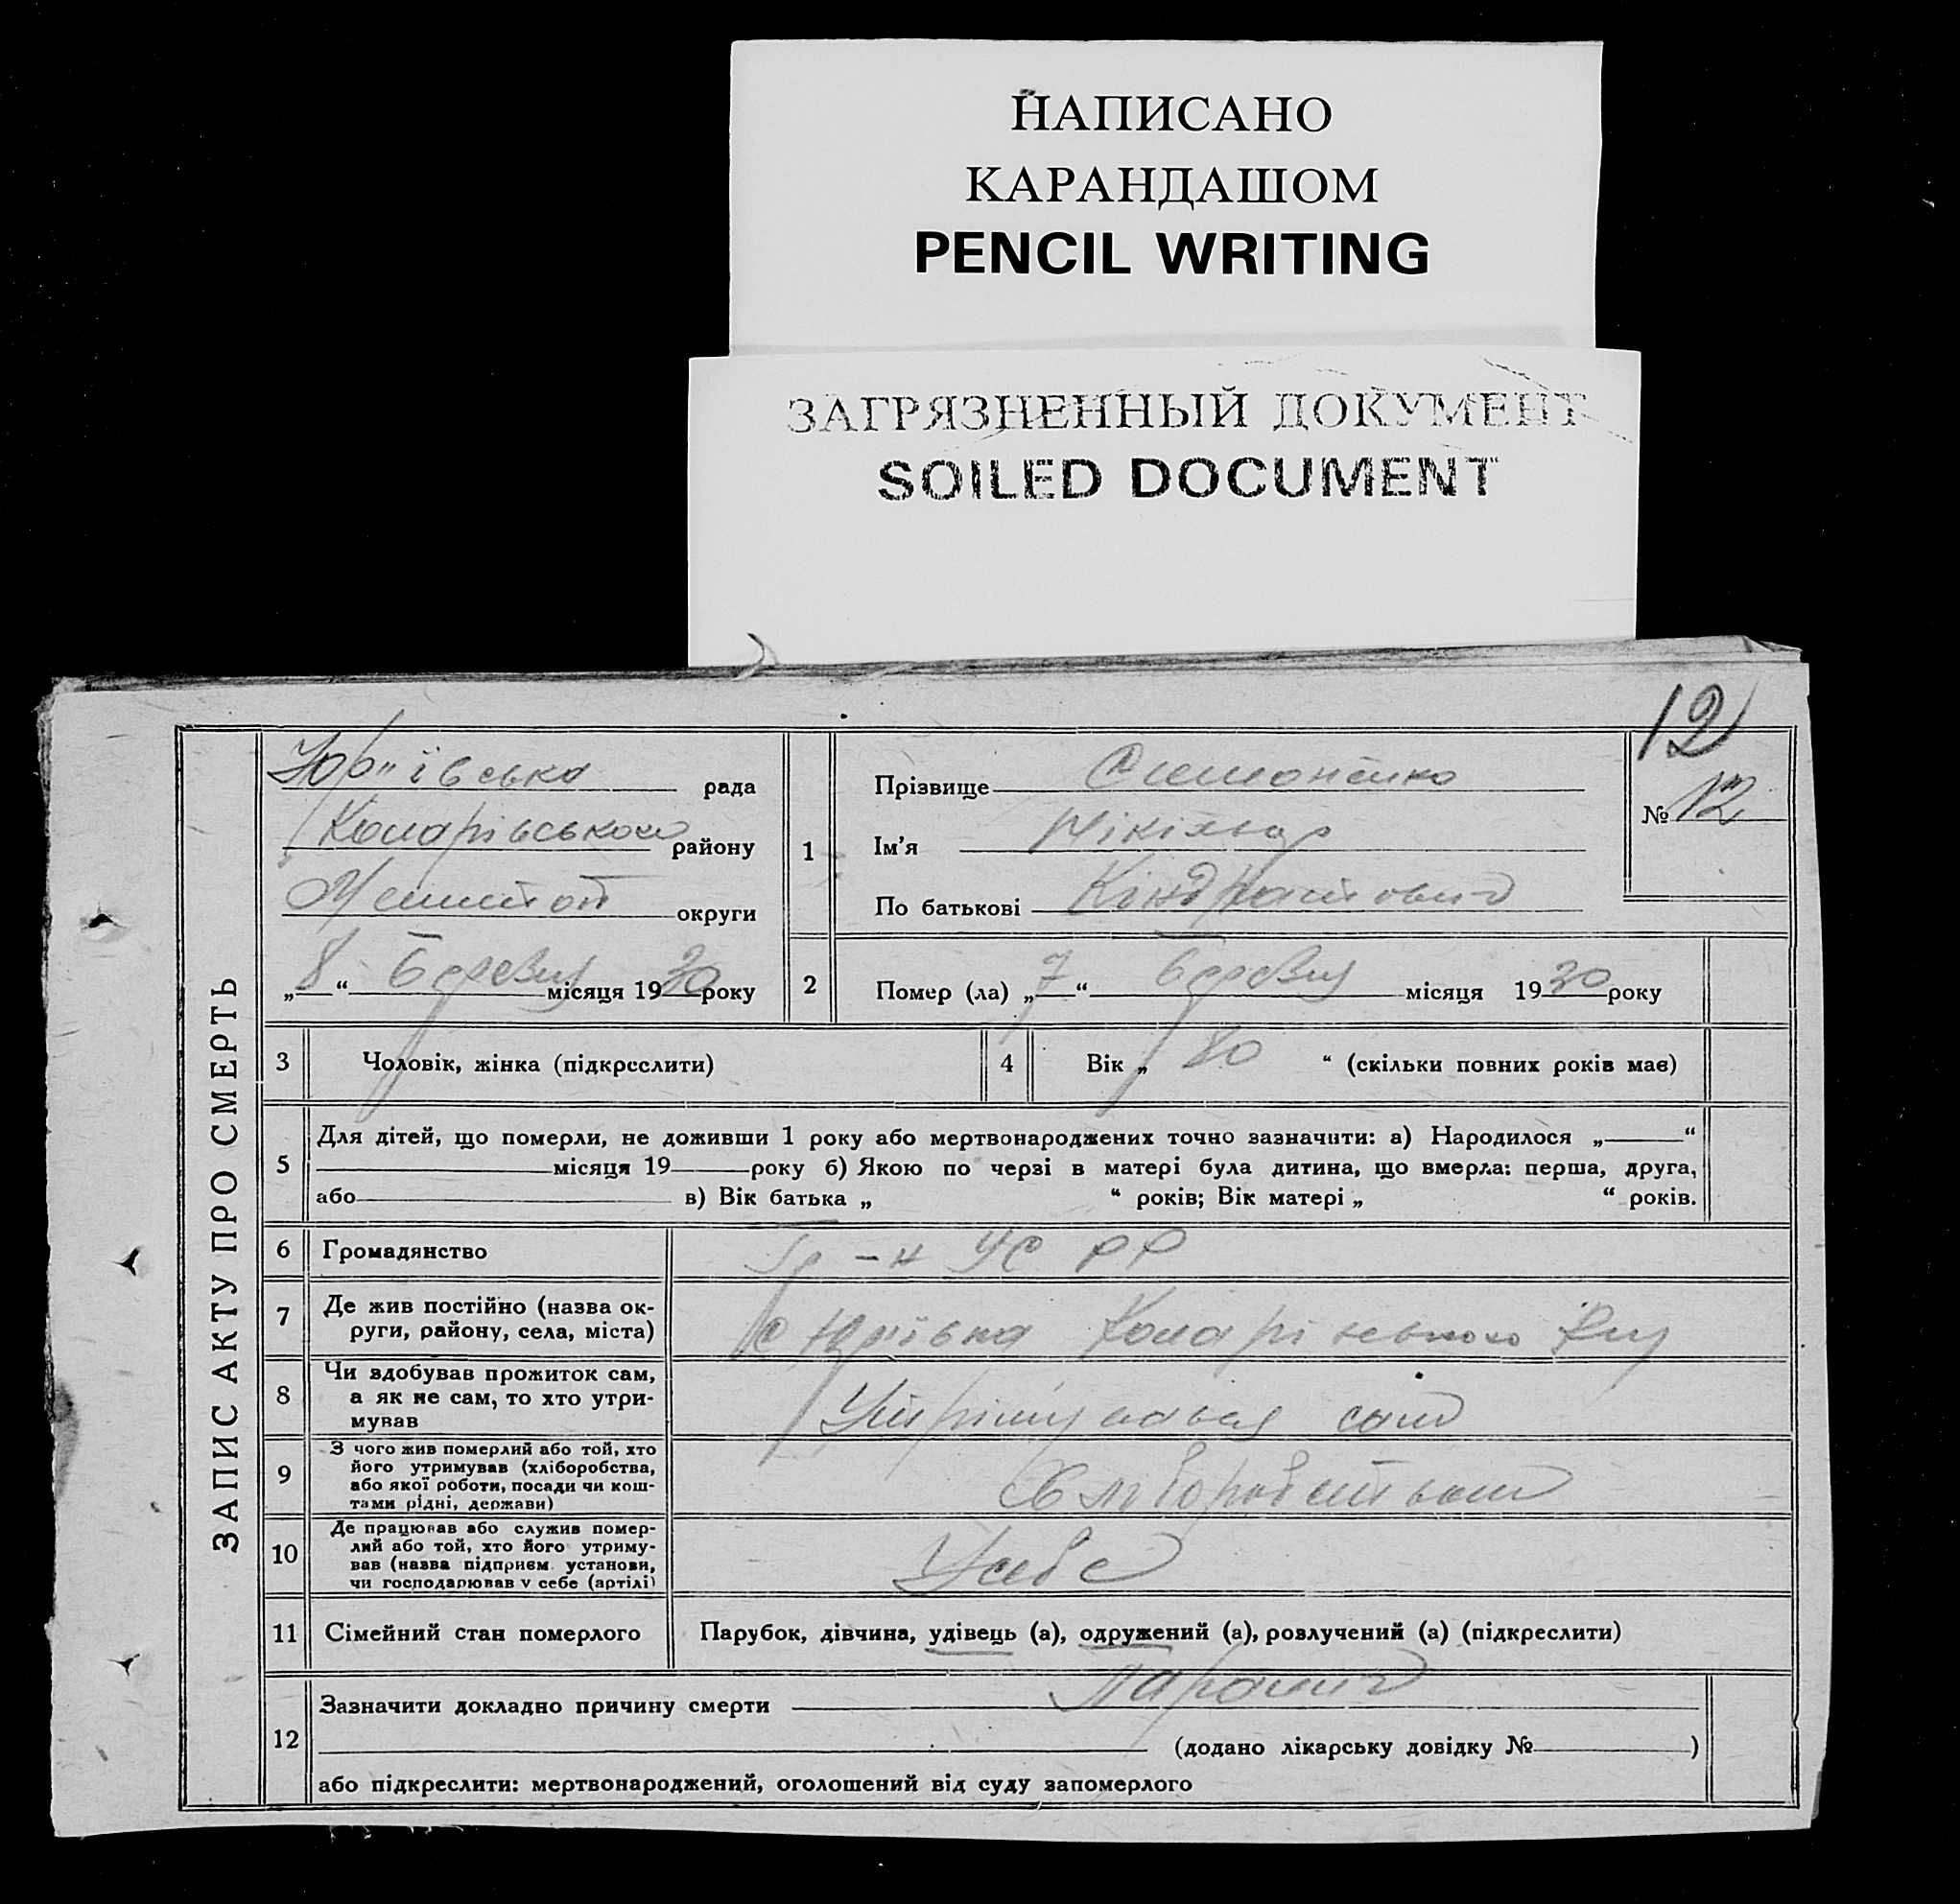 НАПИСАНО
КАРАНДАШОМ
PENCIL WRITING
ЗАГРЯЗНЕННЫЙ ДОКУМЕНТ
SOILED DOCUMENT
12
ЗАПИС АКТУ ПРО СМЕРТЬ
Юр'ївська рада
району
округи
„8“ березня місяця 1930 року
1
Прізвище Симоненко
Ім'я
По батькові Кіндратович
№ 12
2
Помер (ла) „7“ березня місяця 1930 року
3 Чоловік, жінка (підкреслити)
4 Вік „80“ (скільки повних років має)
5 Для дітей, що померли, не доживши 1 року або мертвонароджених точно зазначити: а) Народилося „ “
місяця 19 року б) Якою по черзі в матері була дитина, що вмерла: перша, друга,
або в) Вік батька „ “ років; Вік матері „ “ років.
6 Громадянство Гр-н УСРР
7 Де жив постійно (назва ок-
руги, району, села, міста) с Юр'ївка
8 Чи здобував прожиток сам,
а як не сам, то хто утри-
мував сам
9 З чого жив померлий або той, хто
його утримував (хліборобства,
або якої роботи, посади чи кош-
тами рідні, держави) Хліборобством
10 Де працював або служив помер-
лий або той, хто його утриму-
вав (назва підприєм. установи,
чи господарював у себе (артілі) У себе
11 Сімейний стан померлого Парубок, дівчина, удівець (а), одружений (а), розлучений (а) (підкреслити)
12 Зазначити докладно причину смерти
(додано лікарську довідку № )
або підкреслити: мертвонароджений, оголошений від суду запомерлого